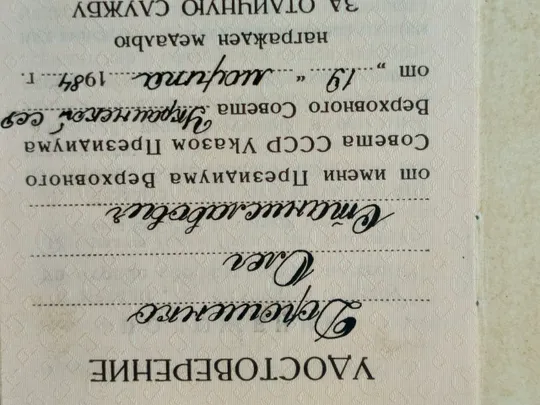 УДОСТОВЕРЕНИЕ
Дорошенко
Олег
Станиславович
от имени Президиума Верховного
Совета СССР Указом Президиума
Верховного Совета Украинской ССР
от „ 19 “ марта 1984 г.
награжден медалью
ЗА ОТЛИЧНУЮ СЛУЖБУ